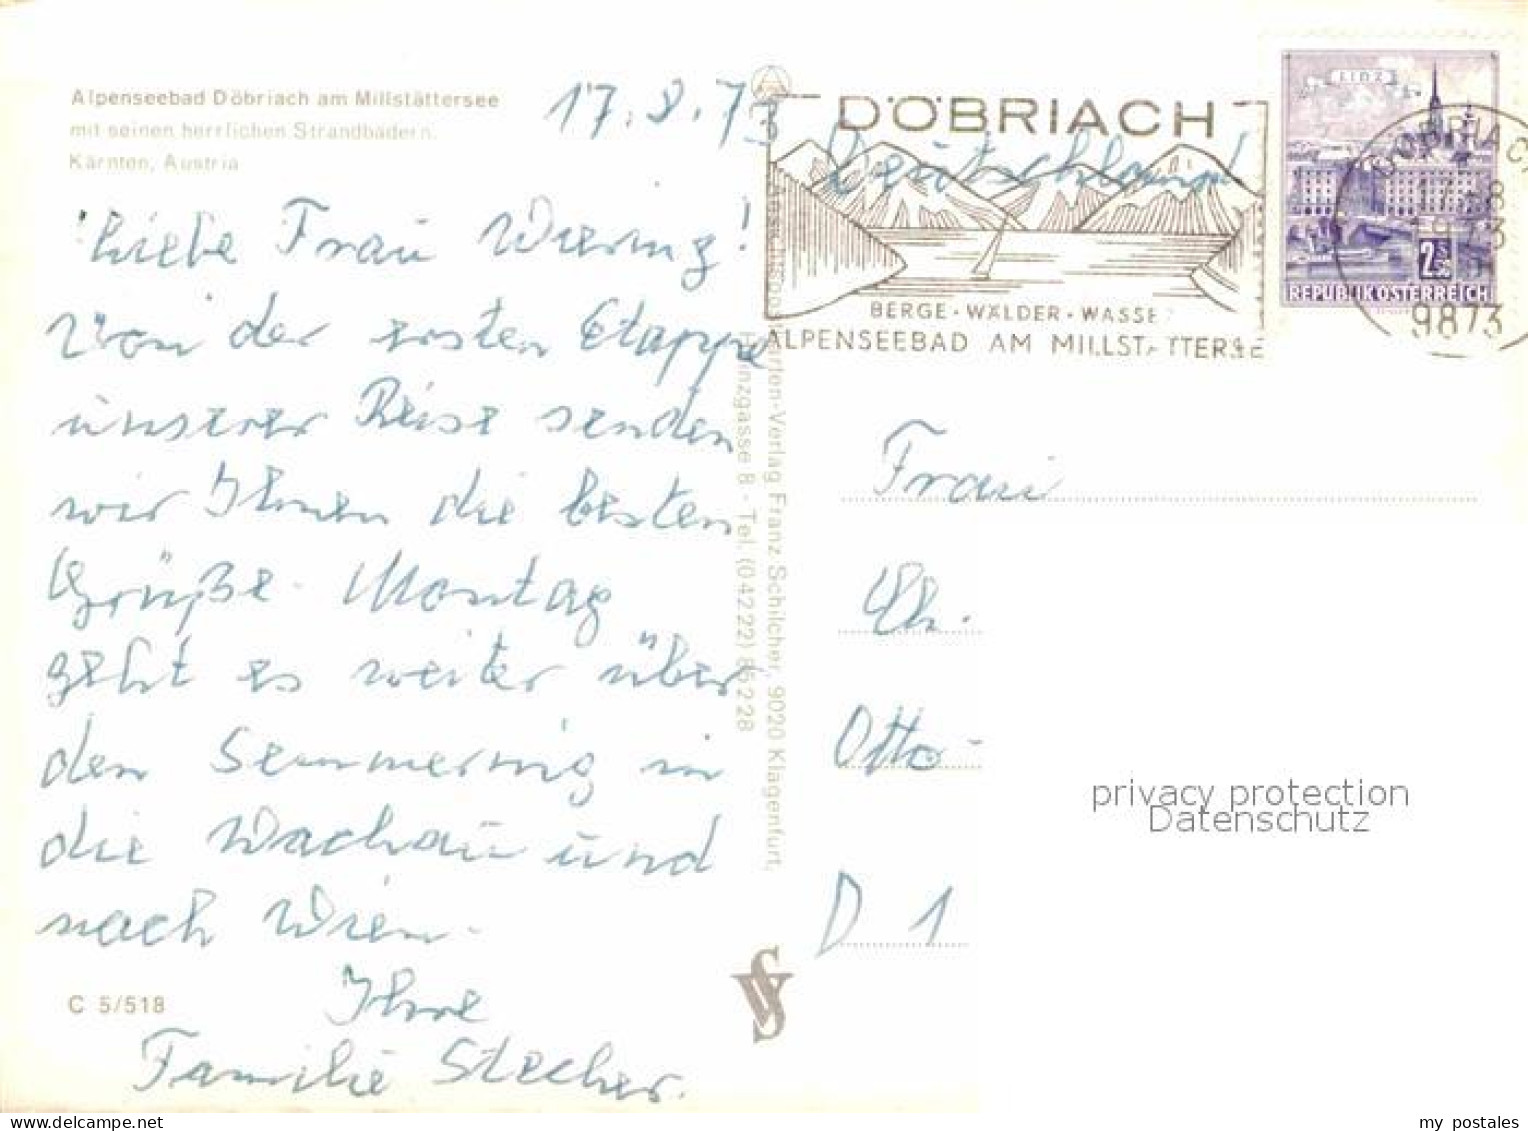 Alpenseebad Döbriach am Millstättersee
mit seinen herrlichen Strandbädern.
Kärnten, Austria
17.8.73
Liebe Frau Wiering!
Von der ersten Etappe
unserer Reise senden
wir Ihnen die besten
Grüße. Montag
geht es weiter über
den Semmering in
die Wachau und
nach Wien.
Ihre
Familie Stecher.
C 5/518
Ansichtskarten-Verlag Franz Schilcher, 9020 Klagenfurt,
gasse 8 - Tel. (04222) 85228
DÖBRIACH
BERGE · WÄLDER · WASSE
ALPENSEEBAD AM MILLSTÄTTERSE
Deutschland
LINZ
2.50
REPUBLIK ÖSTERREICH
DÖBRIACH
17.-8
1973
9873
Frau
Otto-
D 1
privacy protection
Datenschutz
my postales